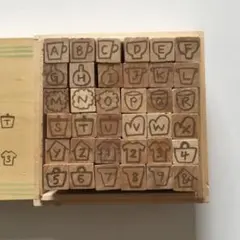 A B C D E F
G H I J K L
M N O P Q R
S T U V W X
Y Z 1 2 3 4
5 6 7 8 9 &
T
S